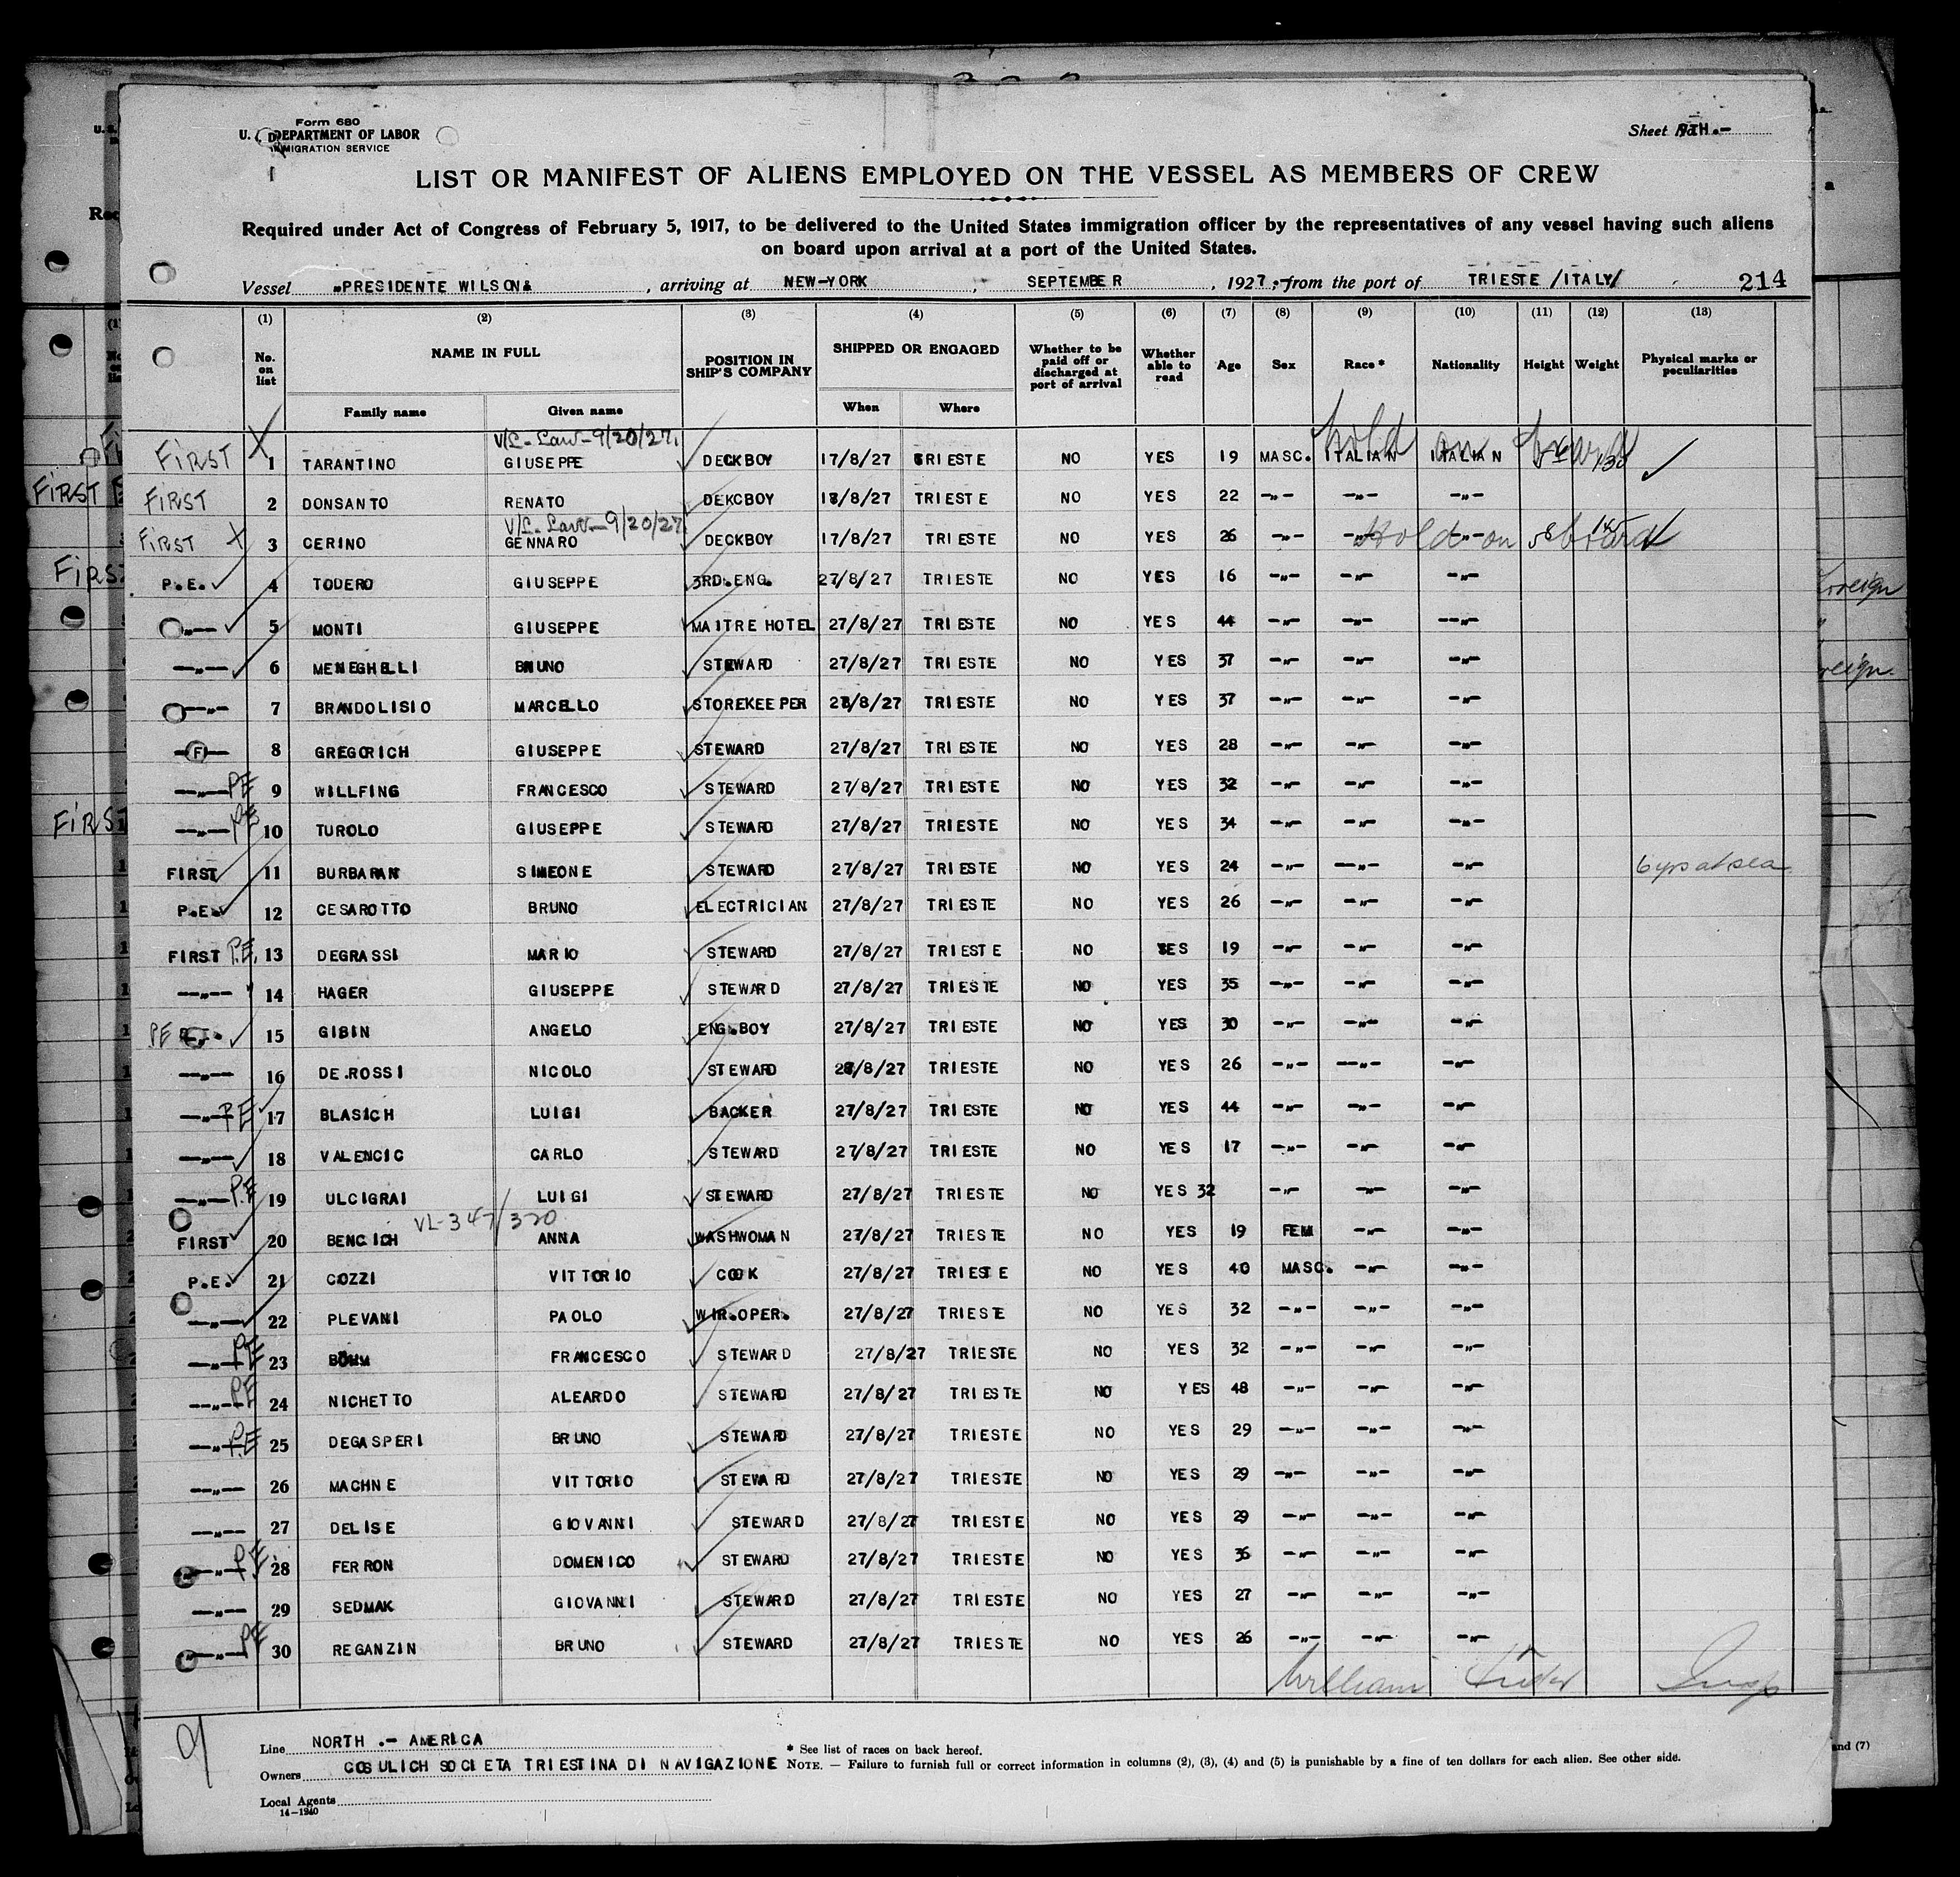 Form 680
U. S. DEPARTMENT OF LABOR
IMMIGRATION SERVICE
Sheet No. 9TH.-
LIST OR MANIFEST OF ALIENS EMPLOYED ON THE VESSEL AS MEMBERS OF CREW
Required under Act of Congress of February 5, 1917, to be delivered to the United States immigration officer by the representatives of any vessel having such aliens
on board upon arrival at a port of the United States.
Vessel "PRESIDENTE WILSON& , arriving at NEW-YORK , SEPTEMBER , 1927.- from the port of TRIESTE /ITALY/ 214
(1) (2) (3) (4) (5) (6) (7) (8) (9) (10) (11) (12) (13)
No. on list NAME IN FULL POSITION IN SHIP'S COMPANY SHIPPED OR ENGAGED Whether to be paid off or discharged at port of arrival Whether able to read Age Sex Race * Nationality Height Weight Physical marks or peculiarities
Family name Given name When Where
V/L-Law-9/20/27. Hold on board
FIRST X 1 TARANTINO GIUSEPPE DECKBOY 17/8/27 TRIESTE NO YES 19 MASC. ITALIAN ITALIAN 130
FIRST 2 DONSANTO RENATO DEKCBOY 18/8/27 TRIESTE NO YES 22 -"- -"- -"-
V/L-Law-9/20/27
FIRST X 3 CERINO GENNARO DECKBOY 17/8/27 TRIESTE NO YES 26 -"- -"- -"- Hold on board 145
P.E. 4 TODERO GIUSEPPE 3RD.ENG. 27/8/27 TRIESTE NO YES 16 -"- -"- -"-
-"- 5 MONTI GIUSEPPE MAITRE HOTEL 27/8/27 TRIESTE NO YES 44 -"- -"- -"-
-"- 6 MENEGHELLI BRUNO STEWARD 27/8/27 TRIESTE NO YES 37 -"- -"- -"-
-"- 7 BRANDOLISIO MARCELLO STOREKEEPER 27/8/27 TRIESTE NO YES 37 -"- -"- -"-
-F- 8 GREGORICH GIUSEPPE STEWARD 27/8/27 TRIESTE NO YES 28 -"- -"- -"-
-"- PE 9 WILLFING FRANCESCO STEWARD 27/8/27 TRIESTE NO YES 32 -"- -"- -"-
-"- PE 10 TUROLO GIUSEPPE STEWARD 27/8/27 TRIESTE NO YES 34 -"- -"- -"-
FIRST 11 BURBARAN SIMEONE STEWARD 27/8/27 TRIESTE NO YES 24 -"- -"- -"- 6 yrs at sea
P.E. 12 CESAROTTO BRUNO ELECTRICIAN 27/8/27 TRIESTE NO YES 26 -"- -"- -"-
FIRST P.E. 13 DEGRASSI MARIO STEWARD 27/8/27 TRIESTE NO YES 19 -"- -"- -"-
-"- 14 HAGER GIUSEPPE STEWARD 27/8/27 TRIESTE NO YES 35 -"- -"- -"-
PE 15 GIBIN ANGELO ENG.BOY 27/8/27 TRIESTE NO YES 30 -"- -"- -"-
-"- 16 DE.ROSSI NICOLO STEWARD 28/8/27 TRIESTE NO YES 26 -"- -"- -"-
-"- PE 17 BLASICH LUIGI BACKER 27/8/27 TRIESTE NO YES 44 -"- -"- -"-
-"- 18 VALENCIC CARLO STEWARD 27/8/27 TRIESTE NO YES 17 -"- -"- -"-
-"- P.E 19 ULCIGRAI LUIGI STEWARD 27/8/27 TRIESTE NO YES 32 -"- -"- -"-
VL-347/320
FIRST 20 BENCICH ANNA WASHWOMAN 27/8/27 TRIESTE NO YES 19 FEM -"- -"-
P.E. 21 COZZI VITTORIO COOK 27/8/27 TRIESTE NO YES 40 MASC. -"- -"-
-"- 22 PLEVANI PAOLO WIR.OPER. 27/8/27 TRIESTE NO YES 32 -"- -"- -"-
-"- PE 23 BÖHM FRANCESCO STEWARD 27/8/27 TRIESTE NO YES 32 -"- -"- -"-
-"- PE 24 NICHETTO ALEARDO STEWARD 27/8/27 TRIESTE NO YES 48 -"- -"- -"-
-"- P.E 25 DEGASPERI BRUNO STEWARD 27/8/27 TRIESTE NO YES 29 -"- -"- -"-
-"- 26 MACHNE VITTORIO STEWARD 27/8/27 TRIESTE NO YES 29 -"- -"- -"-
-"- 27 DELISE GIOVANNI STEWARD 27/8/27 TRIESTE NO YES 29 -"- -"- -"-
-"- P.E. 28 FERRON DOMENICO STEWARD 27/8/27 TRIESTE NO YES 36 -"- -"- -"-
-"- 29 SEDMAK GIOVANNI STEWARD 27/8/27 TRIESTE NO YES 27 -"- -"- -"-
-"- PE 30 REGANZIN BRUNO STEWARD 27/8/27 TRIESTE NO YES 26 -"- -"- -"-
William Insp
9
Line NORTH .- AMERICA
* See list of races on back hereof.
Owners COSULICH SOCIETA TRIESTINA DI NAVIGAZIONE
NOTE. — Failure to furnish full or correct information in columns (2), (3), (4) and (5) is punishable by a fine of ten dollars for each alien. See other side.
Local Agents
14-1240
FIRST
FIRST
FIRST
foreign
and (7)